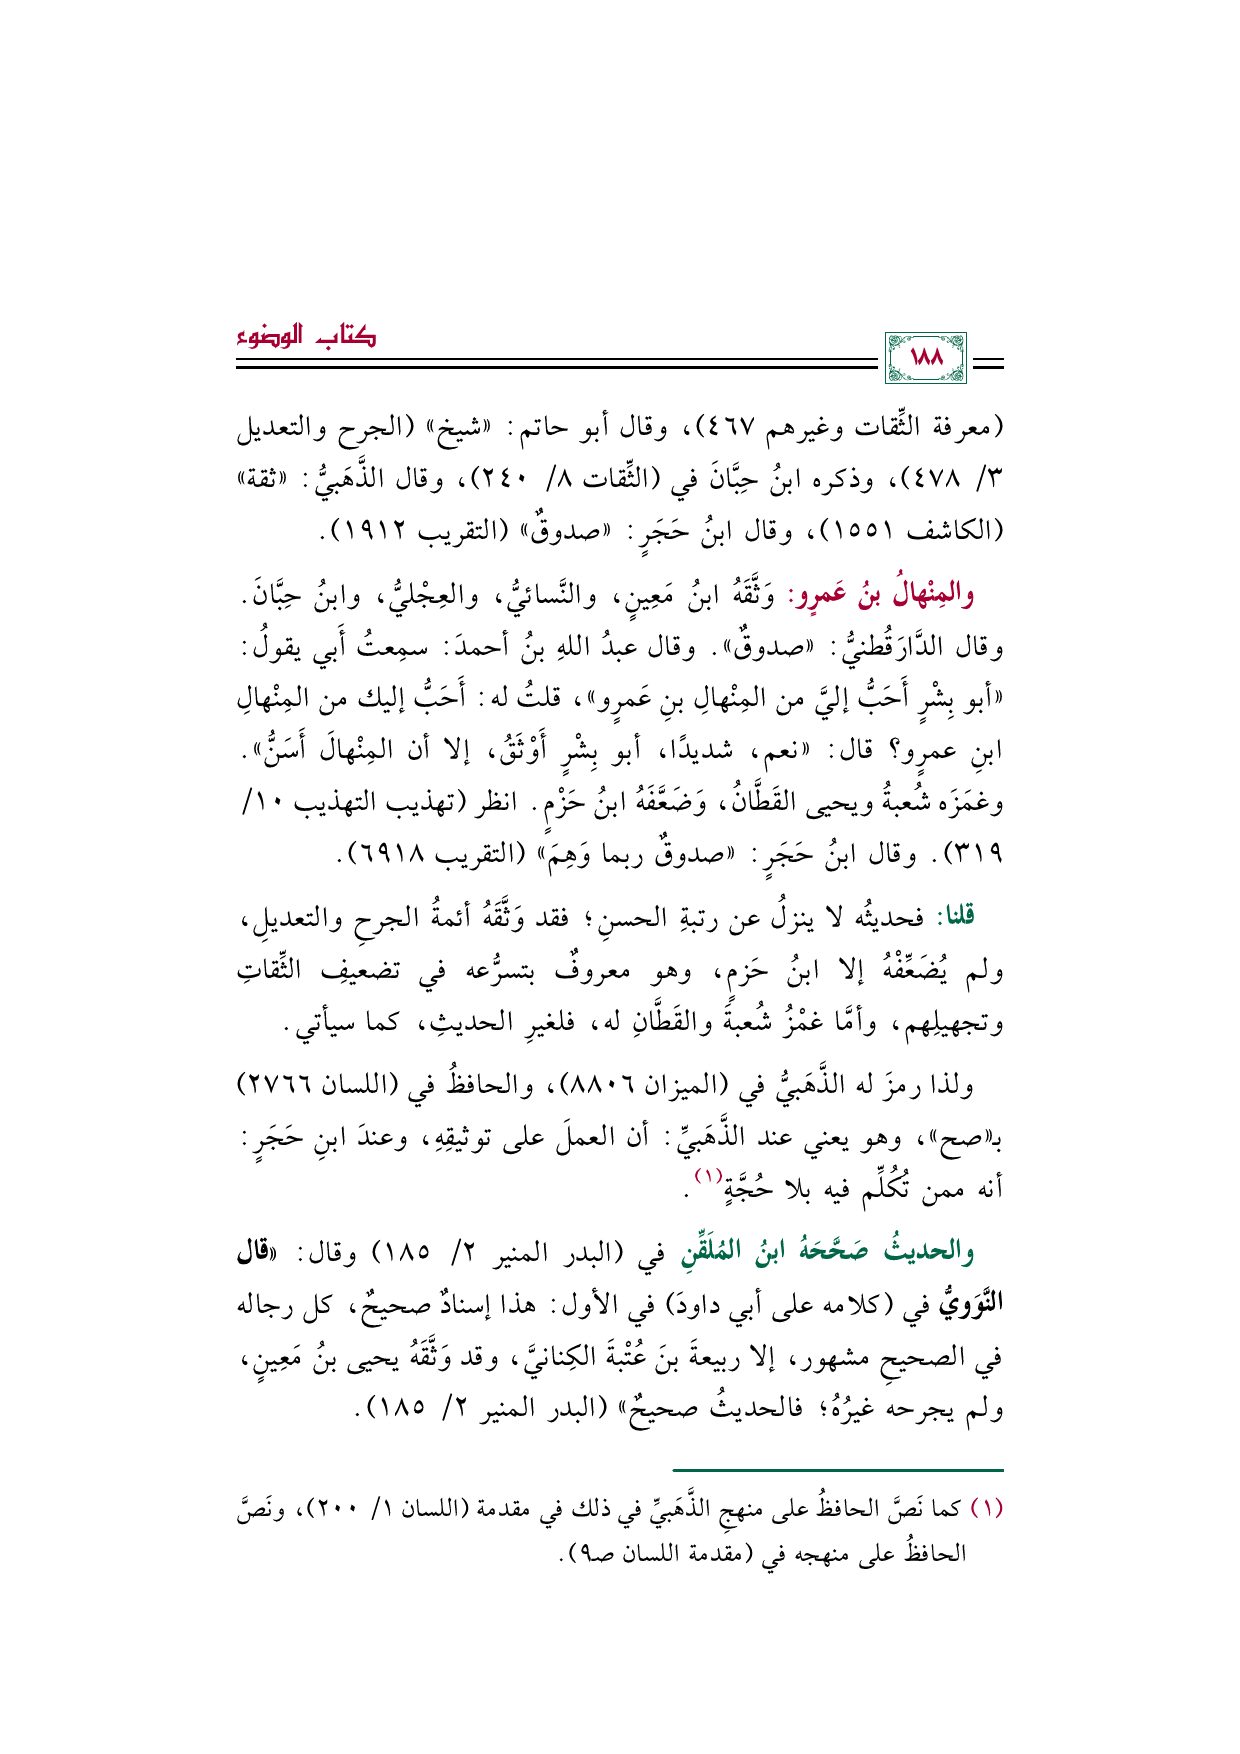 كتاب الوضوء
١٨٨
(معرفة الثِّقات وغيرهم ٤٦٧)، وقال أبو حاتم: «شيخ» (الجرح والتعديل
٣/ ٤٧٨)، وذكره ابنُ حِبَّانَ في (الثِّقات ٨/ ٢٤٠)، وقال الذَّهَبيُّ: «ثقة»
(الكاشف ١٥٥١)، وقال ابنُ حَجَرٍ: «صدوقٌ» (التقريب ١٩١٢).
والمِنْهالُ بنُ عَمرٍو: وَثَّقَهُ ابنُ مَعِينٍ، والنَّسائيُّ، والعِجْليُّ، وابنُ حِبَّانَ.
وقال الدَّارَقُطنيُّ: «صدوقٌ». وقال عبدُ اللهِ بنُ أحمدَ: سمِعتُ أَبي يقولُ:
«أبو بِشْرٍ أَحَبُّ إليَّ من المِنْهالِ بنِ عَمرٍو»، قلتُ له: أَحَبُّ إليك من المِنْهالِ
ابنِ عمرٍو؟ قال: «نعم، شديدًا، أبو بِشْرٍ أَوْثَقُ، إلا أن المِنْهالَ أَسَنُّ».
وغمَزَه شُعبةُ ويحيى القَطَّانُ، وَضَعَّفَهُ ابنُ حَزْمٍ. انظر (تهذيب التهذيب ١٠/
٣١٩). وقال ابنُ حَجَرٍ: «صدوقٌ ربما وَهِمَ» (التقريب ٦٩١٨).
قلنا: فحديثُه لا ينزلُ عن رتبةِ الحسنِ؛ فقد وَثَّقَهُ أئمةُ الجرحِ والتعديلِ،
ولم يُضَعِّفْهُ إلا ابنُ حَزمٍ، وهو معروفٌ بتسرُّعه في تضعيفِ الثِّقاتِ
وتجهيلِهم، وأمَّا غمْزُ شُعبةَ والقَطَّانِ له، فلغيرِ الحديثِ، كما سيأتي.
ولذا رمزَ له الذَّهَبيُّ في (الميزان ٨٨٠٦)، والحافظُ في (اللسان ٢٧٦٦)
بـ«صح»، وهو يعني عند الذَّهَبيِّ: أن العملَ على توثيقِهِ، وعندَ ابنِ حَجَرٍ:
أنه ممن تُكُلِّم فيه بلا حُجَّةٍ(١).
والحديثُ صَحَّحَهُ ابنُ المُلَقِّنِ في (البدر المنير ٢/ ١٨٥) وقال: «قال
النَّوَويُّ في (كلامه على أبي داودَ) في الأول: هذا إسنادٌ صحيحٌ، كل رجاله
في الصحيحِ مشهور، إلا ربيعةَ بنَ عُتْبةَ الكِنانيَّ، وقد وَثَّقَهُ يحيى بنُ مَعِينٍ،
ولم يجرحه غيرُهُ؛ فالحديثُ صحيحٌ» (البدر المنير ٢/ ١٨٥).
(١) كما نَصَّ الحافظُ على منهجِ الذَّهَبيِّ في ذلك في مقدمة (اللسان ١/ ٢٠٠)، ونَصَّ
الحافظُ على منهجه في (مقدمة اللسان صـ٩).